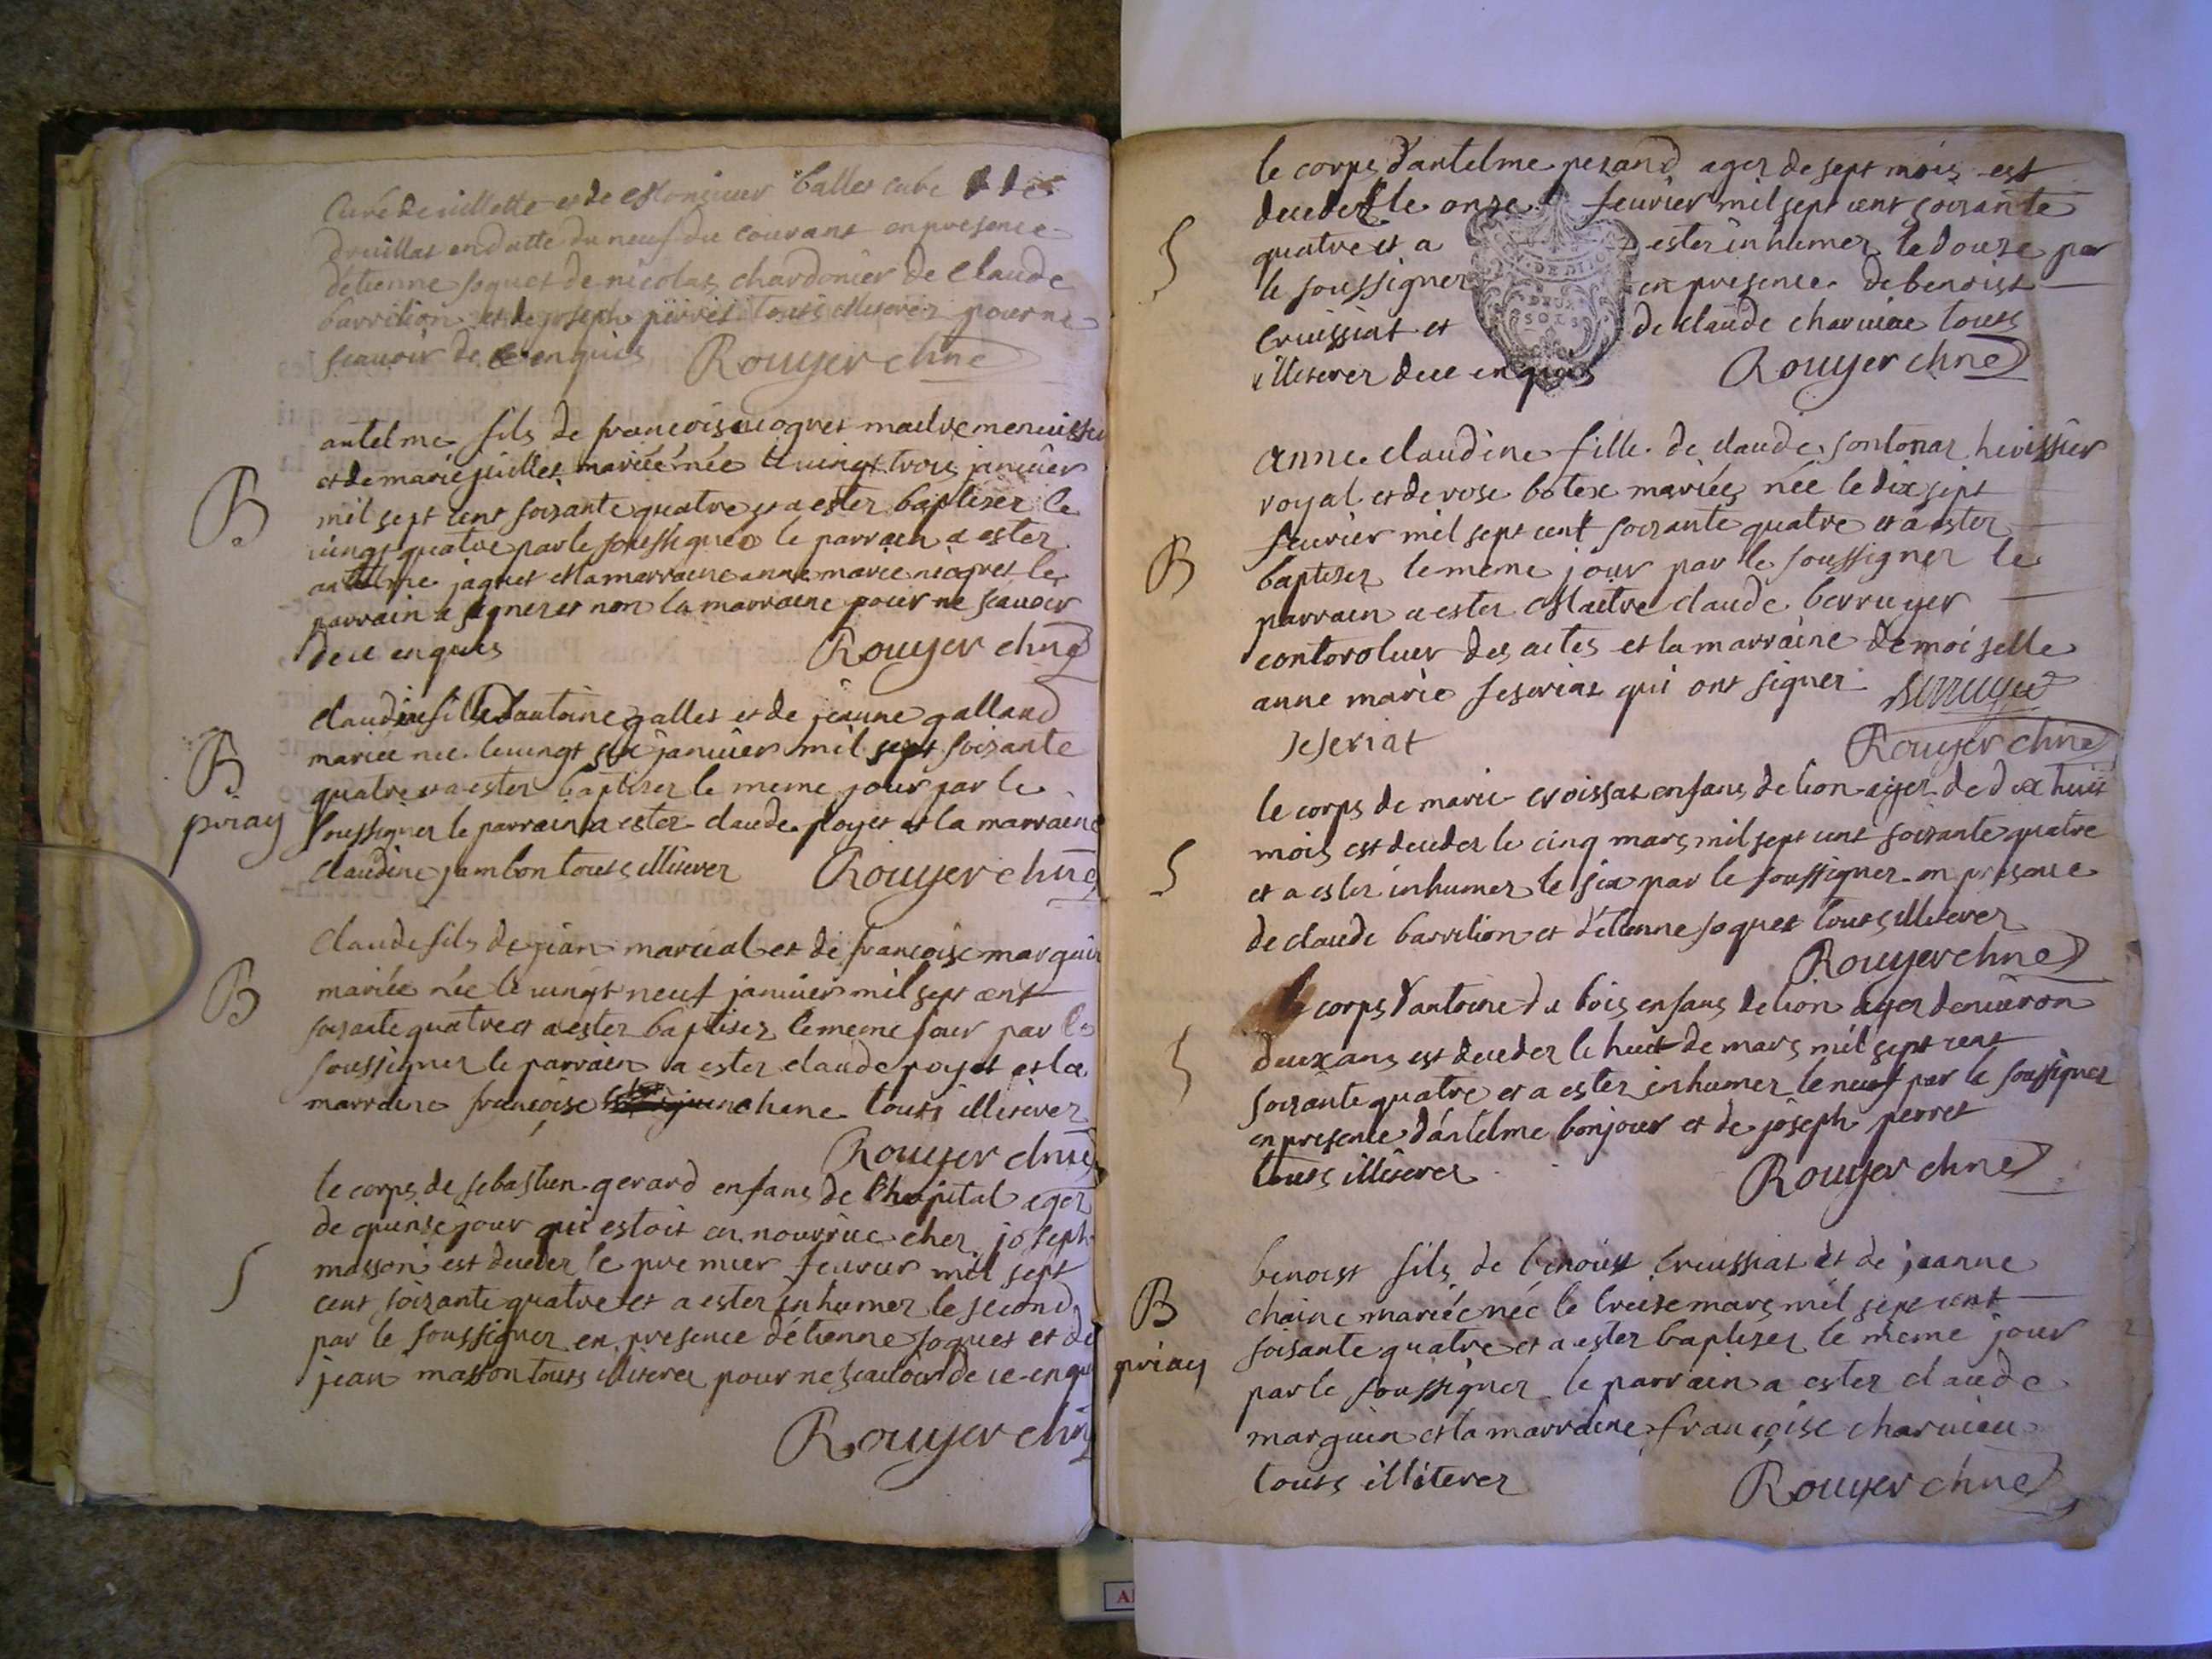 Curé de villette et de Monsieur balles curé
druillat en datte du neuf du courant en presence
détienne soquet de nicolas chardonier de Claude
barrilion et de joseph perret touts illiterez pour ne
scavoir de ce enquis Rouyer chne
antelme fils de francois niogret maitre menuissier
et de marie juillet mariée née le vingt trois janvier
B
mil sept cent soixante quatre et a ester baptiser le
vingt quatre par le soussigner le parrain a ester
antelme jaquet et la marraine anne marie niogret le
parrain a signer et non la marraine pour ne scavoir
de ce enquis Rouyer chne
claudine fille d'antoine galles et de jeanne galland
B
mariée née le vingt six janvier mil sept soixante
quatre et a ester baptiser le meme jour par le
priay
soussigner le parrain a ester claude ployet et la marraine
claudine jambon touts illiterer Rouyer chne
Claude fils de jean marcial et de francoise marguin
B
mariée née le vingt neuf janvier mil sept cent
soixante quatre et a ester baptiser le meme jour par le
soussigner le parrain a ester claude poyet et la
marraine françoise chene touts illiterer
Rouyer chne
le corps de sebastien gerard enfans de l'hopital ager
de quinse jour qui estoit en nourrice cher joseph
S
masson est deceder le premier fevrier mil sept
cent soixante quatre et a ester inhumer le second
par le soussigner en presence détienne soquet et de
jean masson touts illiterer pour ne scavoir de ce enquis
Rouyer chne
le corps d'antelme perand ager de sept mois est
deceder le onze fevrier mil sept cent soixante
S
quatre et a ester inhumer le douze par
le soussigner en presence de benoist
cruissiat et de claude charvieu touts
illiterer de ce enquis Rouyer chne
DEUX
SOLS
anne claudine fille de claude sontonar huissier
royal et de rose botex mariéz née le dix sept
fevrier mil sept cent soixante quatre et a ester
B
baptiser le meme jour par le soussigner le
parrain a ester Maitre claude berruyer
contoroluer des actes et la marraine demoiselle
anne marie seseriat qui ont signer Berruyer
seseriat Rouyer chne
le corps de marie croissat enfans de lion ager de dix huit
mois est deceder le cinq mars mil sept cent soixante quatre
S
et a ester inhumer le six par le soussigner en presence
de claude barrilion et d'étienne soquet touts illiterer
Rouyer chne
le corps d'antoine du bois enfans de lion ager denviron
S
deux ans est deceder le huit de mars mil sept cent
soixante quatre et a ester inhumer le neuf par le soussigner
en presence d'antelme bonjour et de joseph perret
touts illiterer Rouyer chne
benoist fils de benoist cruissiat et de jeanne
B
chaine mariée née le treise mars mil sept cent
soisante quatre et a ester baptiser le meme jour
priay
par le soussigner le parrain a ester claude
marguin et la marraine françoise charvieu
touts illiterer Rouyer chne